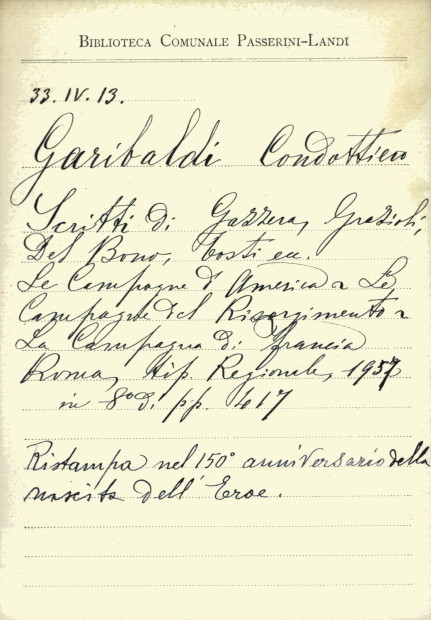 BIBLIOTECA COMUNALE PASSERINI-LANDI
33. IV. 13.
Garibaldi Condottiero
Scritti di Gazzera, Grazioli,
Del Bono, Costi ecc.
Le Campagne d'America - Le
Campagne del Risorgimento -
La Campagna di Francia
Roma, tip. Regionale, 1957
in 8° g. pp. 417
Ristampa nel 150° anniversario della
nascita dell'Eroe.